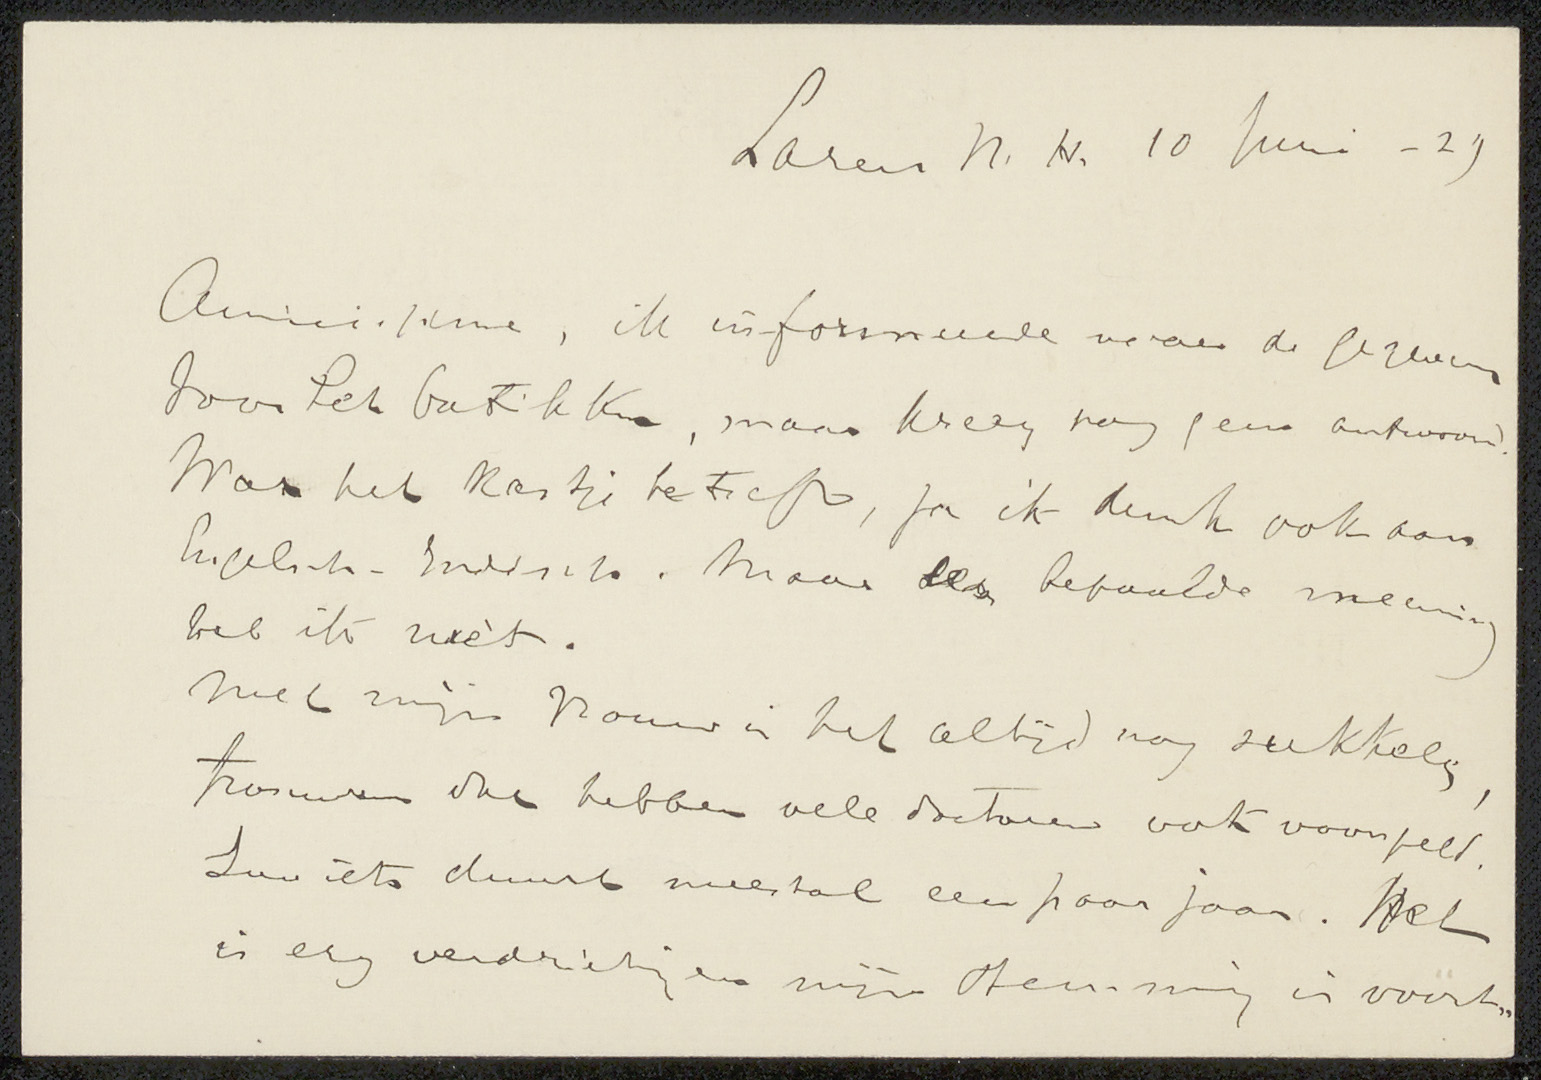 Laren N. H. 10 Juni - 29
Amicissime, ik informeerde naar de gegevens
voor het batikken, maar kreeg nog geen antwoord.
Wat het kastje betreft, ja ik denk ook aan
Engelsch-Indisch. Maar een bepaalde meening
heb ik niet.
Met mijn vrouw is het altijd nog sukkelig,
trouwens dat hebben vele doctoren ook voorspeld.
Zoo iets duurt meestal een paar jaar. Het
is erg verdrietig en mijn stemming is